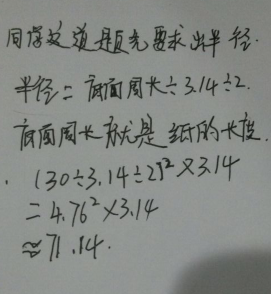 同学这道题先要求出半径.
半径=底面周长÷3.14÷2.
底面周长就是纸的长度.
(30÷3.14÷2)²×3.14
=4.76²×3.14
≈71.14.